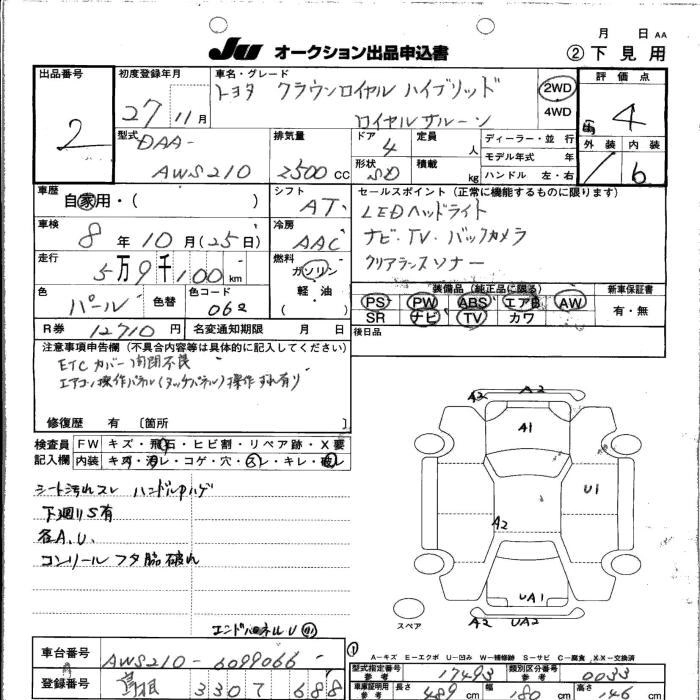 月 日 AA
JU オークション出品申込書 ②下見用
出品番号 2
初度登録年月 27 11月
車名・グレード
トヨタ クラウンロイヤル ハイブリッド
ロイヤルサルーン
2WD
4WD
評価点 4
外装 内装 6
型式 DAA-
AWS210
排気量 2500 CC
ドア 4
形状 SD
定員 人
積載 kg
ディーラー・並行
モデル年式 年
ハンドル 左・右
車歴 自家用・( )
シフト AT
セールスポイント(正常に機能するものに限ります)
LEDヘッドライト
ナビ・TV・バックカメラ
クリアランスソナー
車検 8年10月(25日)
冷房 AAC
走行 5万9千100km
燃料 ガソリン
軽・油
( )
色 パール 色替
色コード 062
装備品(純正品に限る)
PS PW ABS エアB AW
SR ナビ TV カワ
新車保証書
有・無
R券 12710円 名変通知期限 月 日
後日品
注意事項申告欄(不具合内容等は具体的に記入してください)
ETCカバー開閉不良
エアコン操作パネル(タッチパネル)操作すれ有り
修復歴 有 [箇所 ]
検査員 FW キズ・飛石・ヒビ割・リペア跡・X要
記入欄 内装 キズ・汚レ・コゲ・穴・スレ・キレ・破レ
シート汚れスレ ハンドルハゲ
下廻りS有
各A.U.
コンソールフタ脇破れ
エンドパネルU
A2 A2
A1
U1
A2
UA1
A2 UA2
スペア
A-キズ E-エクボ U-凹み W-補修跡 S-サビ C-腐食 X.X-交換済
車台番号 AWS210-6099066
登録番号 島根 330 7 688
型式指定番号 参考 17493
類別区分番号 参考 0033
車庫証明用 参考 長さ 489 cm 幅 180 cm 高さ 146 cm